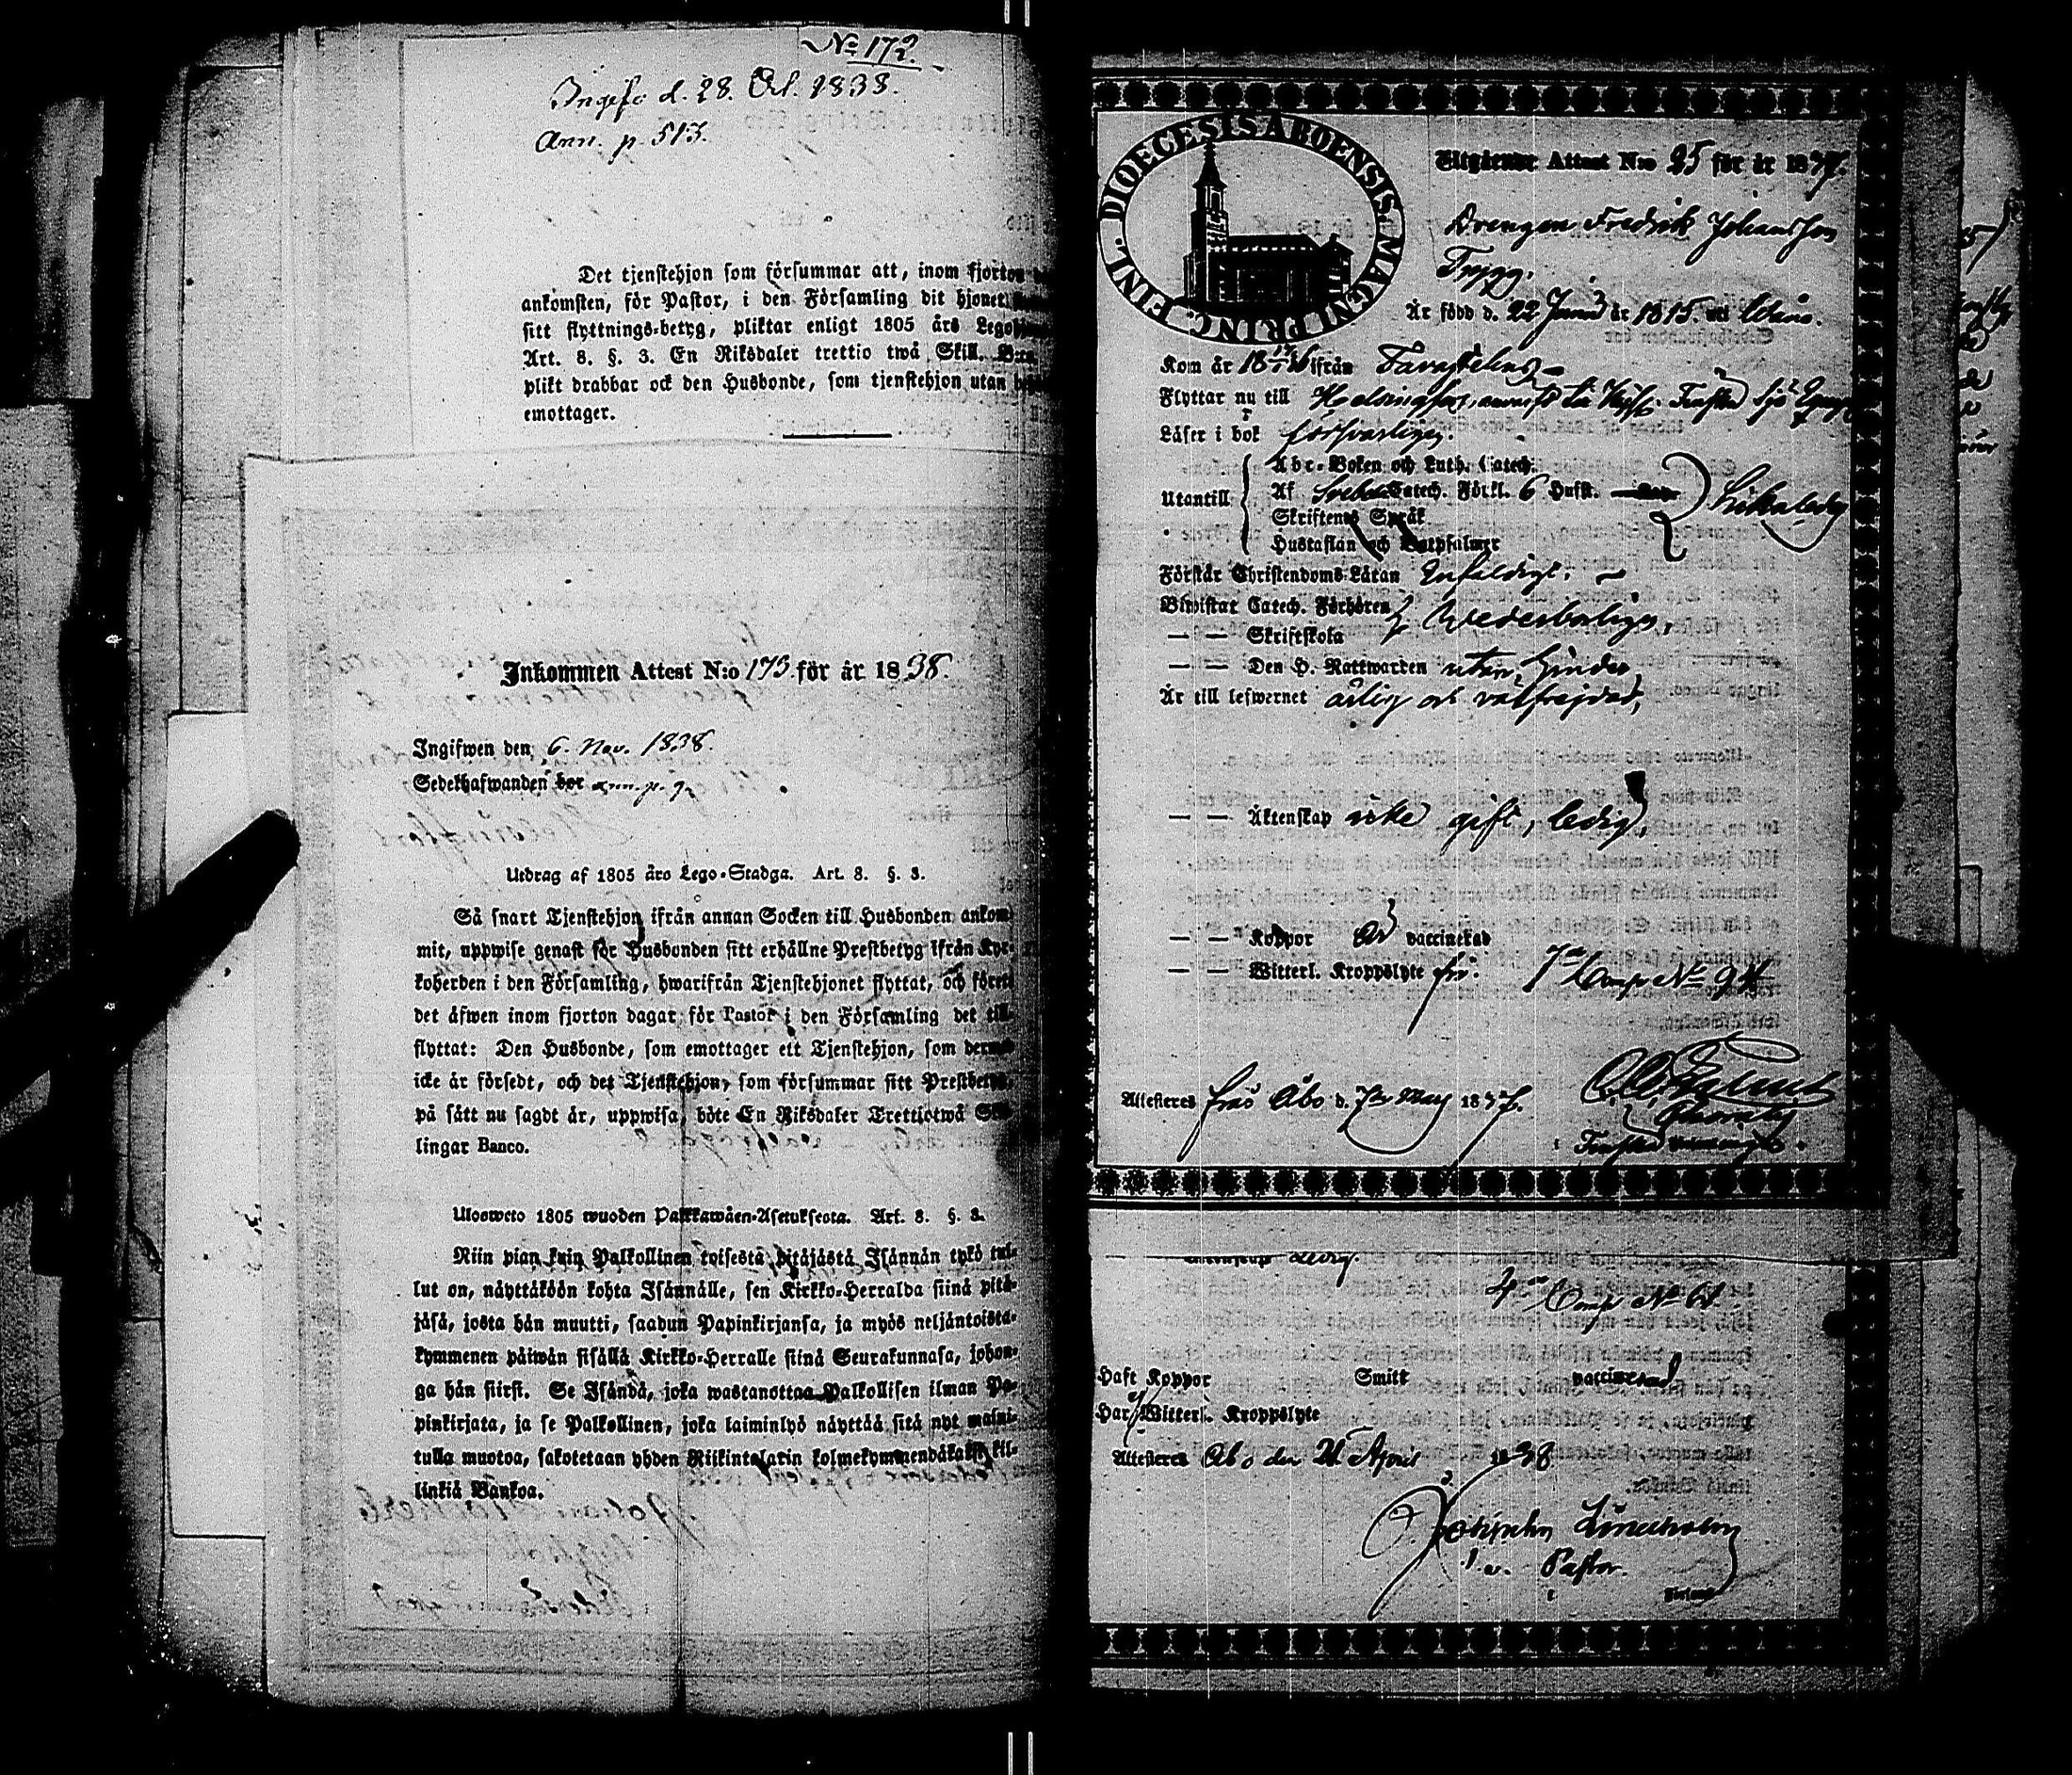 No 172.
d. 28. Oct. 1838.
Ann. p. 513.
Det tjenstehjon som försummar att, inom fjorton
ankomsten, för Pastor, i den Församling dit hjonet
sitt flyttnings-betyg, pliktar enligt 1805 års
Art. 8. §. 3. En Riksdaler trettio twå Skill.
plikt drabbar ock den Husbonde, som tjenstehjon utan
emottager.
Inkommen Attest N:o 173. för år 1838.
Ingifwen den 6. Nov. 1838.
Sedelhafwanden bor ann. p.
Utdrag af 1805 års Lego-Stadga. Art. 8. §. 3.
Så snart Tjenstehjon ifrån annan Socken till Husbonden ankom-
mit, uppwise genast för Husbonden sitt erhållne Prestbetyg ifrån Kyr-
koherden i den Församling, hwarifrån Tjenstehjonet flyttat, och förete
det äfwen inom fjorton dagar för Pastor i den Församling det till-
flyttat: Den Husbonde, som emottager ett Tjenstehjon, som dermed
icke är försedt, och det Tjenstehjon, som försummar sitt Prestbetyg,
på sätt nu sagdt är, uppwisa, böte En Riksdaler Trettiotwå Skil-
lingar Banco.
Ulosweto 1805 wuoden Palkkawäen-Asetuksesta. Art. 8. §. 3.
Niin pian kuin Palkollinen toisesta pitäjästä Isännän tykö tul-
lut on, näyttäköön kohta Isännälle, sen Kirkko-Herralda siinä pitä-
jäsä, josta hän muutti, saadun Papinkirjansa, ja myös neljäntoista-
kymmenen päiwän sisällä Kirkko-Herralle siinä Seurakunnasa, johon-
ga hän siirst. Se Isändä, joka wastanottaa Palkollisen ilman Pa-
pinkirjata, ja se Palkollinen, joka laiminlyö näyttää sitä nyt maini-
tulla muotoa, sakotetaan yhden Riikintalarin kolmekymmendäkaksi kil-
linkiä Bankoa.
DIOECESIS ABOENSIS MAGNI PRINC. FINL.
Utgående Attest N:o 25 för år 1837.
Drengen Fredrik Johansson
Trygg.
Är född d. 22 Junii år 1815 uti
Kom år ifrån Tavastehus
Flyttar nu till Helsingfors,
Läser i bok försvarligen.
Utantill
Abc-Boken och Luth. Catech.
Af Svebel. Catech. Förkl. 6 Hufst.
Skriftenes Språk
Hustaflan och Botpsalmer
Förstår Christendoms-Läran Enfaldigt.
Biwistat Catech. Förhören
— — Skriftskola
wederbörligen,
— — Den H. Nattwarden utan hinder,
Är till lefwernet ärlig och välfrejdad,
— — Äktenskap icke gift, ledig,
— — Koppor är vaccinerad
— — Witterl. Kroppslyte fri.
Comp No 94
Attesteras från Åbo d. 7 May 1837.
ledig.
4 Comp No 61
Haft Koppor Smitt vaccinerad
Har Witterl. Kroppslyte
Attesteras Åbo den 21 April 1838
Lindholm
Pastor.